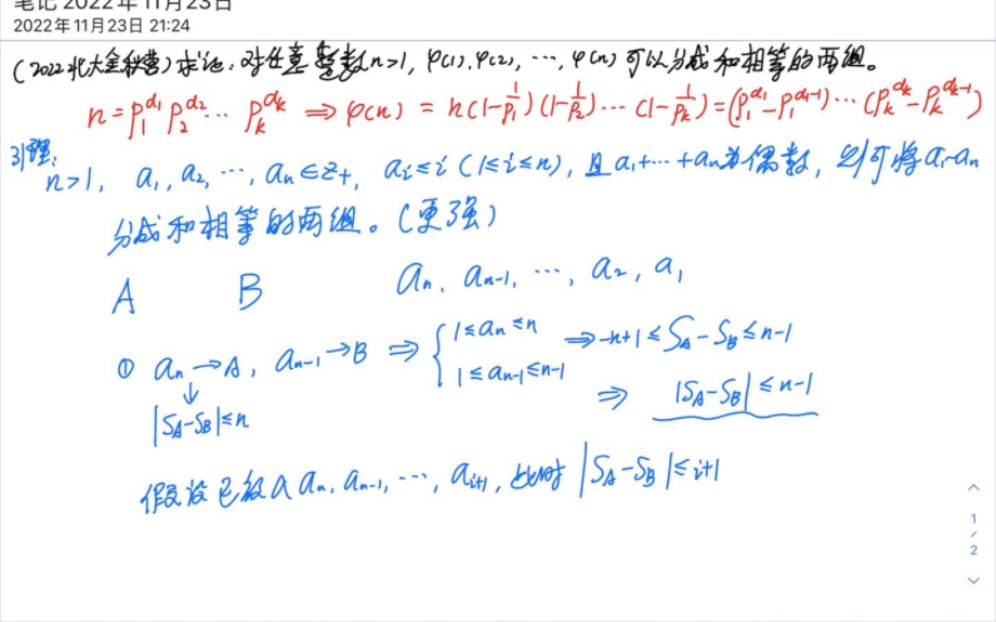 笔记 2022年11月23日
2022年11月23日 21:24
(2022北大金秋营) 求证：对任意整数n>1, φ(1), φ(2), ⋯, φ(n) 可以分成和相等的两组。
n=p₁^α₁ p₂^α₂ ⋯ pₖ^αₖ ⇒ φ(n) = n(1-1/p₁)(1-1/p₂)⋯(1-1/pₖ)=(p₁^α₁-p₁^(α₁-1))⋯(pₖ^αₖ-pₖ^(αₖ-1))
引理：
n>1, a₁, a₂, ⋯, aₙ∈Z₊, aᵢ≤i (1≤i≤n), 且a₁+⋯+aₙ为偶数, 则可将a₁~aₙ
分成和相等的两组。(更强)
A B aₙ, aₙ₋₁, ⋯, a₂, a₁
① aₙ→A, aₙ₋₁→B ⇒ { 1≤aₙ≤n ⇒ -n+1≤S_A-S_B≤n-1
1≤aₙ₋₁≤n-1 ⇒ |S_A-S_B|≤n-1
↓
|S_A-S_B|≤n
假设已放入aₙ, aₙ₋₁, ⋯, aᵢ₊₁, 此时 |S_A-S_B|≤i+1
1
/
2